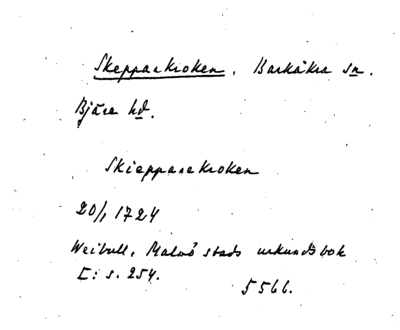 Skepparkroken. Barkåkra sn.
Bjäre hd.
Skieppare Kroken
20/1 1724
Weibull, Malmö stads urkundsbok
I: s. 254.
5566.